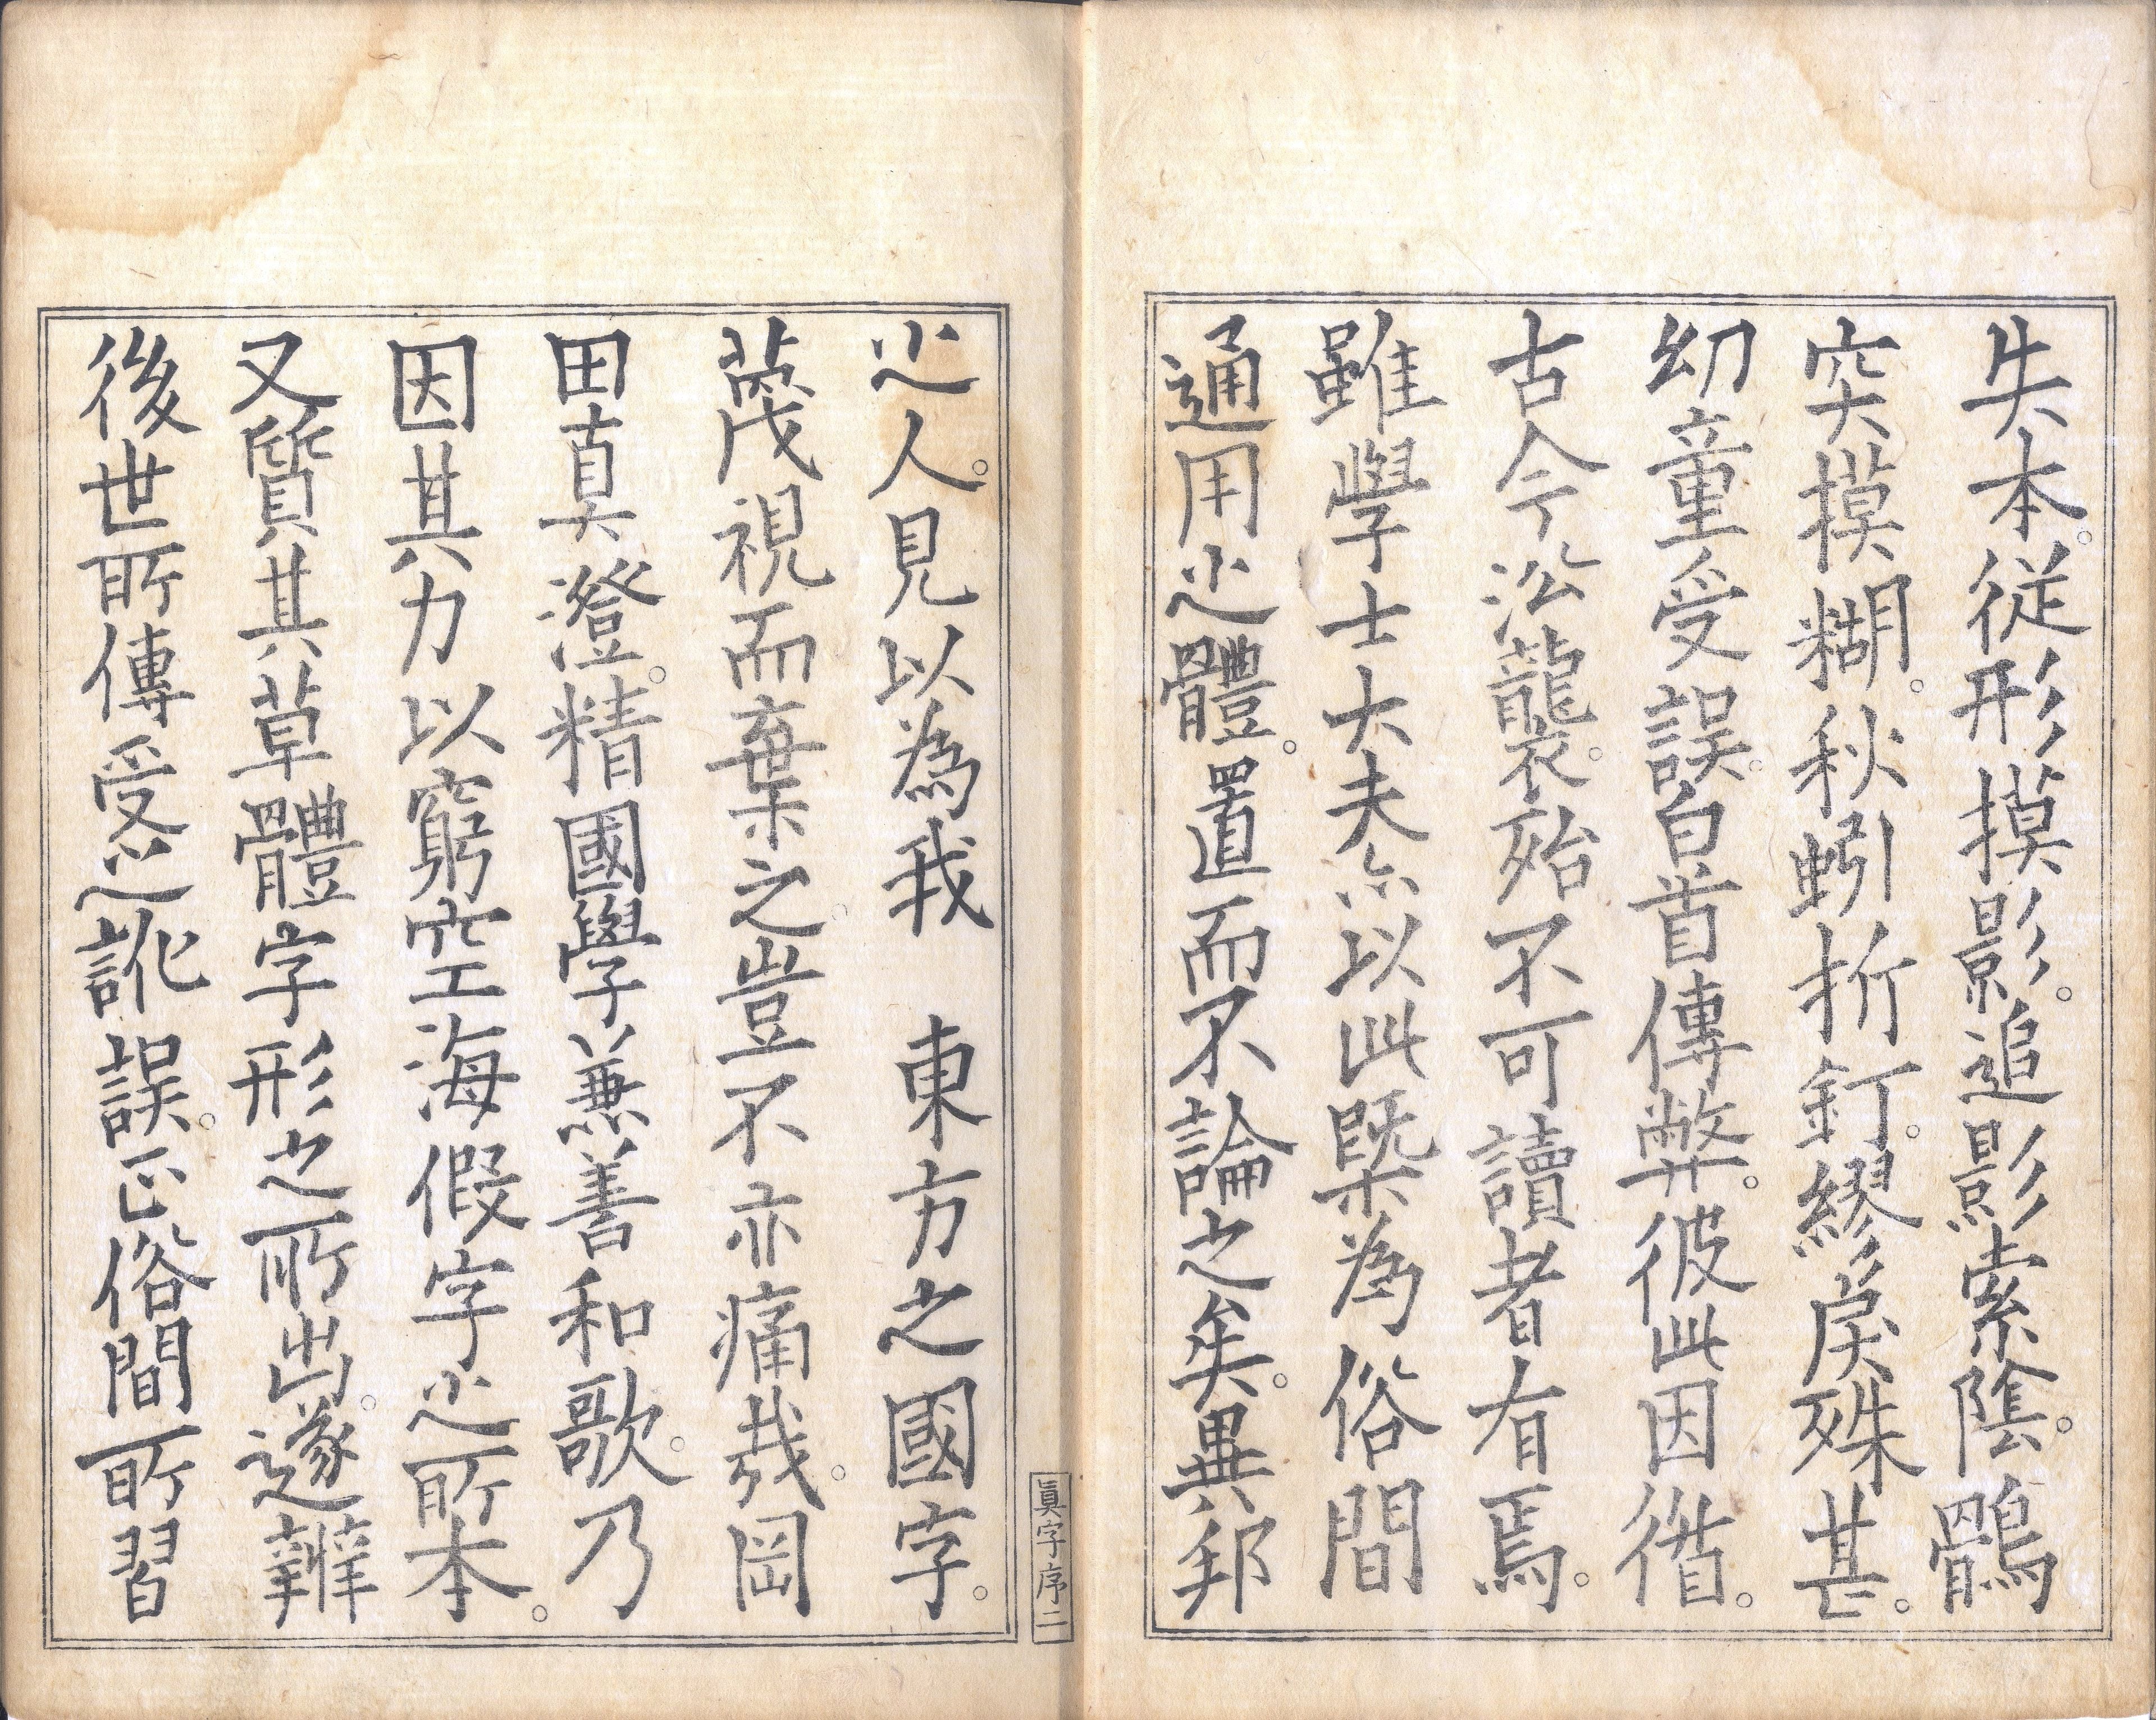 失本。従形摸影。追影索陰。鶻
突摸糊。秋蚓折釘。繆戻殊甚。
幼童受誤。白首傳弊。彼此因循。
古今㳂襲。殆不可讀者有焉。
雖學士大夫亦以此槩為俗間
通用之體。置而不論之矣。異邦
之人。見以為我　東方之國字。
蔑視而棄之。豈不亦痛哉。岡
田真澄。精國學兼善和歌。乃
因其力以窮空海假字之所本。
又質其草體字形之所出。遂辨
後世所傳受之訛誤。正俗間所習
眞字序二